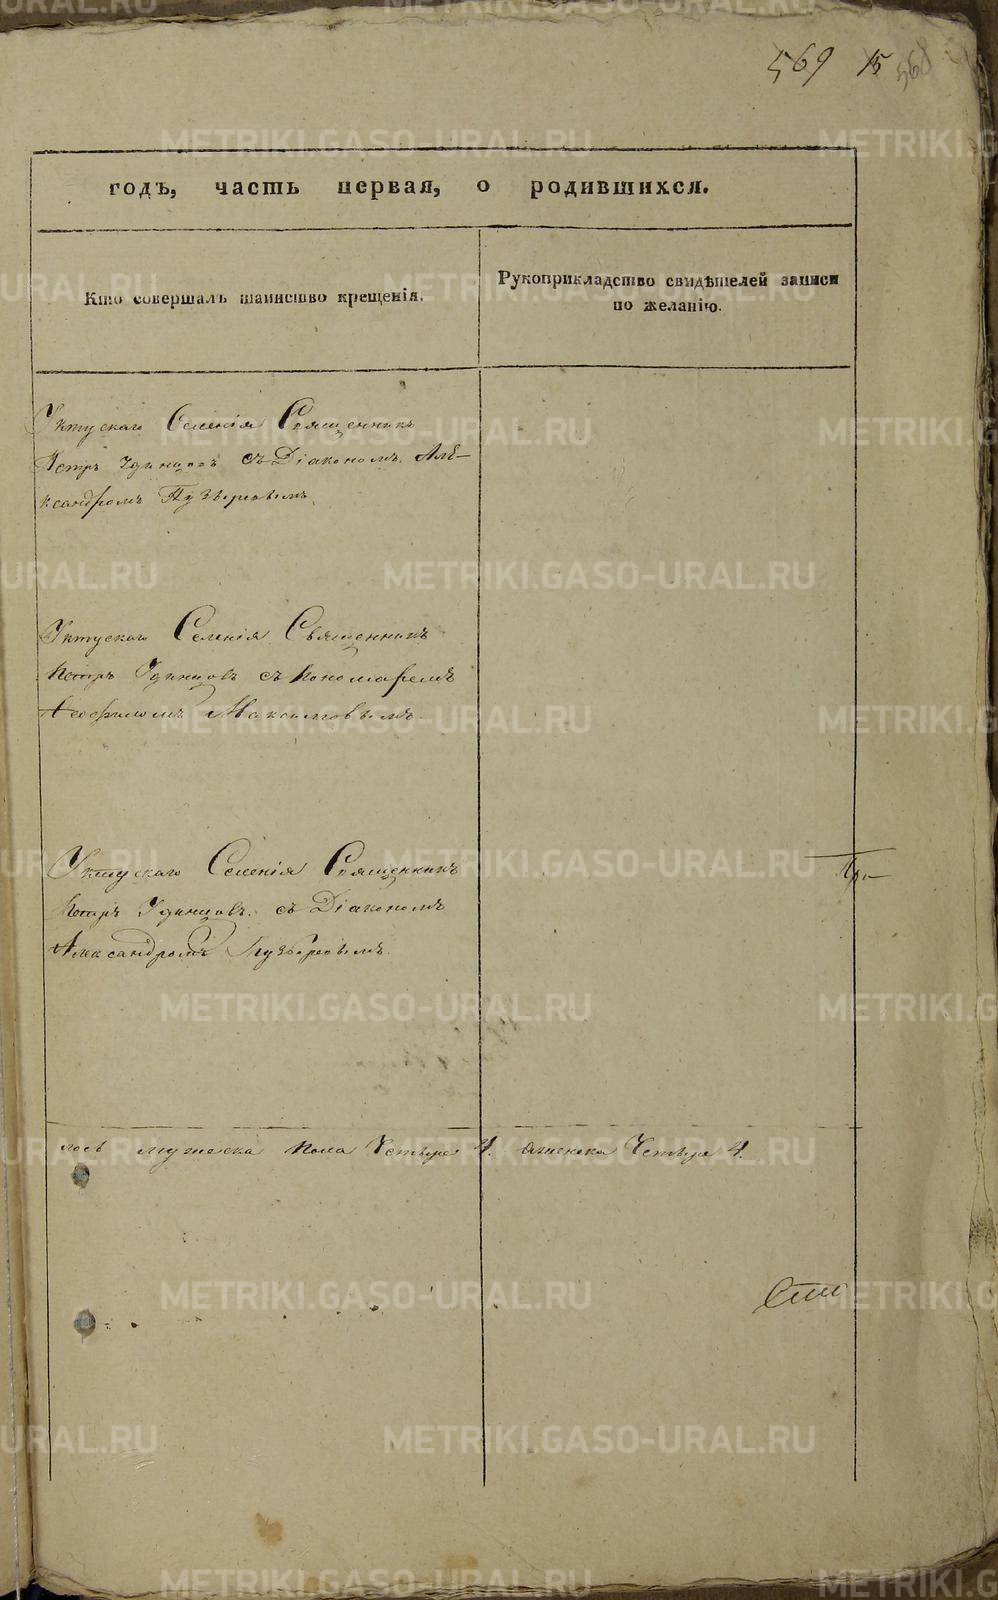 569 15 568
годъ, часть первая, о родившихся.
Кто совершалъ таинство крещенія.
Рукоприкладство свидѣтелей записи
по желанію.
Уктускаго Селенія Священникъ
Петръ Удинцовъ съ Діакономъ Але-
ксандромъ Пузыревымъ.
Уктускаго Селенія Священникъ
Петръ Удинцовъ съ Пономаремъ
Максимовымъ.
Уктускаго Селенія Священникъ
Петръ Удинцовъ съ Діакономъ
Александромъ Пузыревымъ.
лось мужеска пола Четыре 4. женска Четыре 4.
METRIKI.GASO-URAL.RU